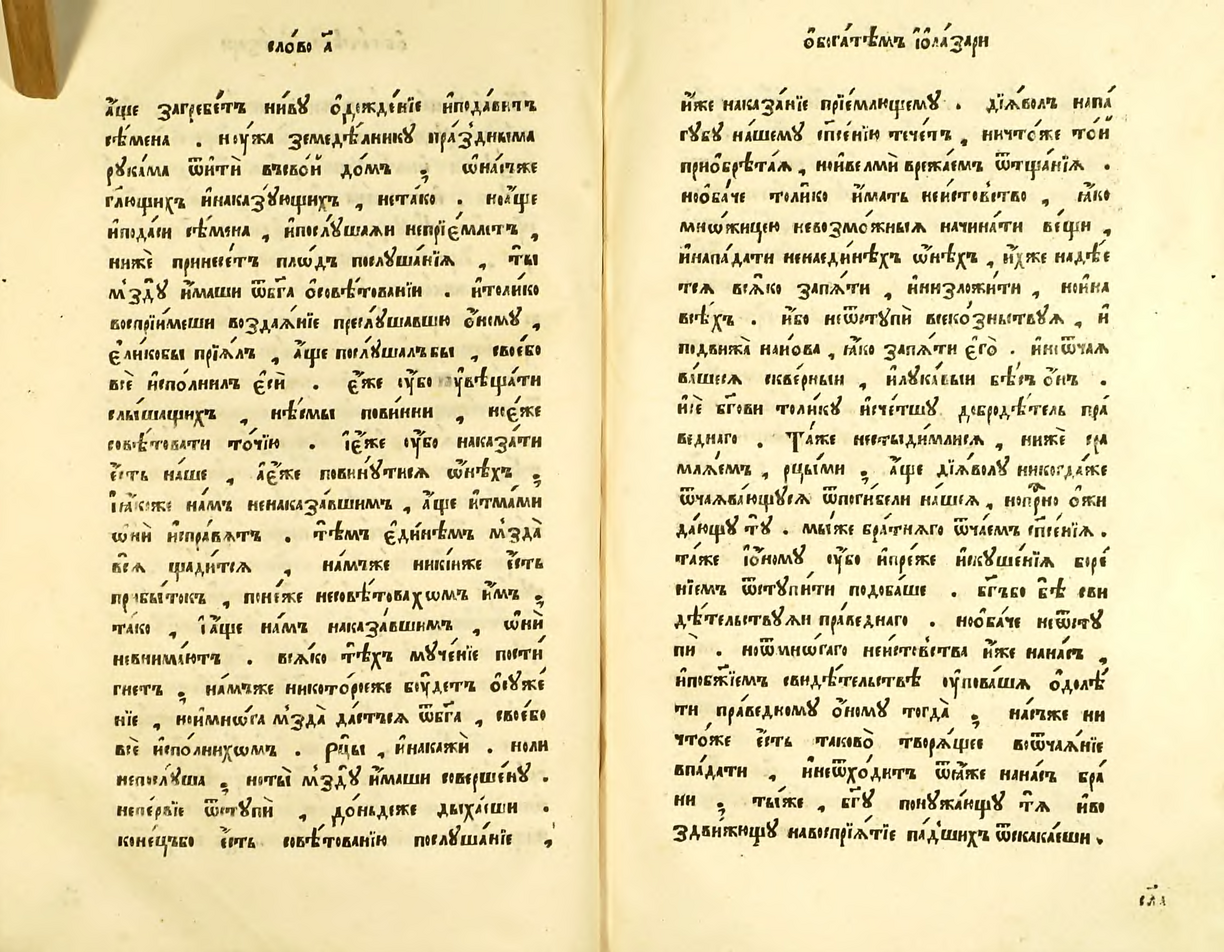 сло́во а҃
а҆́ще загребе́тъ ни́вꙋ ѻ҆дежде́нїе и҆пода́витъ
сѣ́мена . ноу҆́жа земедѣ́лникꙋ пра́здныма
рꙋка́ма ѿи҆тѝ въсво́й до́мъ ; ѡ҆на́съже
гл҃ющихъ и҆наказꙋ́ющихъ , нета́ко . ноа҆́ще
и҆пода́си сѣ́мена , и҆послꙋ́шаяи непрїе́млитъ ,
нижѐ принесе́тъ пло́дъ послꙋша́нїѧ , ты̀
мздꙋ̀ и҆́маши ѿбг҃а ѻ҆совѣ́товании . и҆толи́ко
воспрїи́меши воздаѧ́нїе преслꙋ́шавшю ѻ҆́номꙋ ,
є҆ли́кобы прїѧ́лъ , а҆́ще послꙋ́шалъбы , своебо
всѐ и҆спо́лнилъ є҆сѝ . є҆́же оу҆́бо оу҆вѣща́ти
слы́шащихъ , нѣ́смы пови́нни , ноє҆́же
совѣ́товати то́чїю . і҆є҆́же оу҆́бо наказа́ти
є҆́сть на́ше , а҆є҆́же повинꙋ́тисѧ ѡ҆нѣ́хъ ;
ꙗ҆́коже на́мъ ненаказа́вшимъ , а҆́ще и҆тма́ми
ѡ҆нѝ и҆спра́вѧтъ . тѣ́мъ є҆ди́нѣмъ мзда̀
всѧ̀ щади́тсѧ , на́мъже ники́иже є҆́сть
прибы́токъ , поне́же несовѣ́товахомъ и҆́мъ ;
та́ко , і҆а҆́ще на́мъ наказа́вшимъ , ѡ҆нѝ
невнима́ютъ . всѧ́ко тѣ́хъ мꙋче́нїе пости
гнетъ ; на́мъже никото́роеже бꙋ́детъ ѻ҆сꙋже́
нїе , ноимно́га мзда̀ да́стъсѧ ѿбг҃а , своебо
всѐ и҆спо́лнихомъ . рцы̀ , и҆накажѝ . ноли
непослꙋ́ша ; ноты̀ мздꙋ̀ и҆́маши соверше́нꙋ .
непе́рвїе ѿстꙋпѝ , до́ньдеже дыха́еши .
коне́цъбо є҆́сть совѣ́тованїю послꙋша́нїе ,
ѻ҆бога́тѣмъ і҆ѻ҆ла́зари
и҆́же наказа́нїе прїе́млющемꙋ . дїѧ́волъ напа́
гꙋбꙋ на́шемꙋ сп҃се́нїю тече́тъ , ничто́же то́й
приѻбрѣта́ѧ , ноивелмѝ врежа́емъ ѿтща́нїѧ .
нооба́че толи́ко и҆́мать неи́стовство , ꙗ҆́ко
мно́жицею невозмо́жныѧ начина́ти ве́щи ,
и҆напа́дати ненаеди́нѣхъ ѡ҆нѣ́хъ , и҆́хже надѣ́е
тсѧ всѧ́ко запѧ́ти , и҆низложи́ти , нойна
всѣ́хъ . и҆́бо неѿстꙋпѝ всеко́знствꙋѧ , и҆
подвижа̀ нанова , ꙗ҆́ко запѧ́ти є҆го̀ . ниѿча́ѧ
ва́шесѧ скве́рныи , и҆лꙋка́выи бѣ́съ ѻ҆́нъ .
и҆сѐ бг҃ови толи́кꙋ и҆сче́тшꙋ добродѣ́тель пра́
веднаго . та́же нестыди́млисѧ , нижѐ сра
млѧ́емъ , рцы́ми ; а҆́ще дїѧ́волꙋ никогда́же
ѿчаѧва́ющꙋсѧ ѿпоги́бели на́шеѧ , нопр҇но ѻ҆жи
да́ющꙋ тꙋ̀ . мы́же бра́тняго ѿча́емъ сп҃се́нїѧ .
та́же і҆ѻ҆́номꙋ оу҆́бо и҆пре́же и҆скꙋше́нїѧ боре́
нїемъ ѿстꙋпи́ти подоба́ше . бг҃ъбо бѣ̀ сви
дѣ́тельствꙋяи пра́веднаго . нооба́че неѿстꙋ
пѝ . ноѿмно́гаго неи́стовства и҆́же нана́съ ,
и҆побж҃їемъ свидѣ́тельствѣ оу҆пова́шѧ ѻ҆долѣ́
ти пра́ведномꙋ ѻ҆́номꙋ тогда̀ ; на́съже ни
что́же є҆́сть таково̀ творѧ́щее воѿча́ѧнїе
впа́дати , и҆неѿхо́дитъ ѿню́же нана́съ бра́
ни ; ты́же , бг҃ꙋ понꙋжа́ющꙋ тѧ̀ и҆во
здви́жющꙋ навоспрїѧ́тїе па́дшихъ ѿскака́еши .
сла